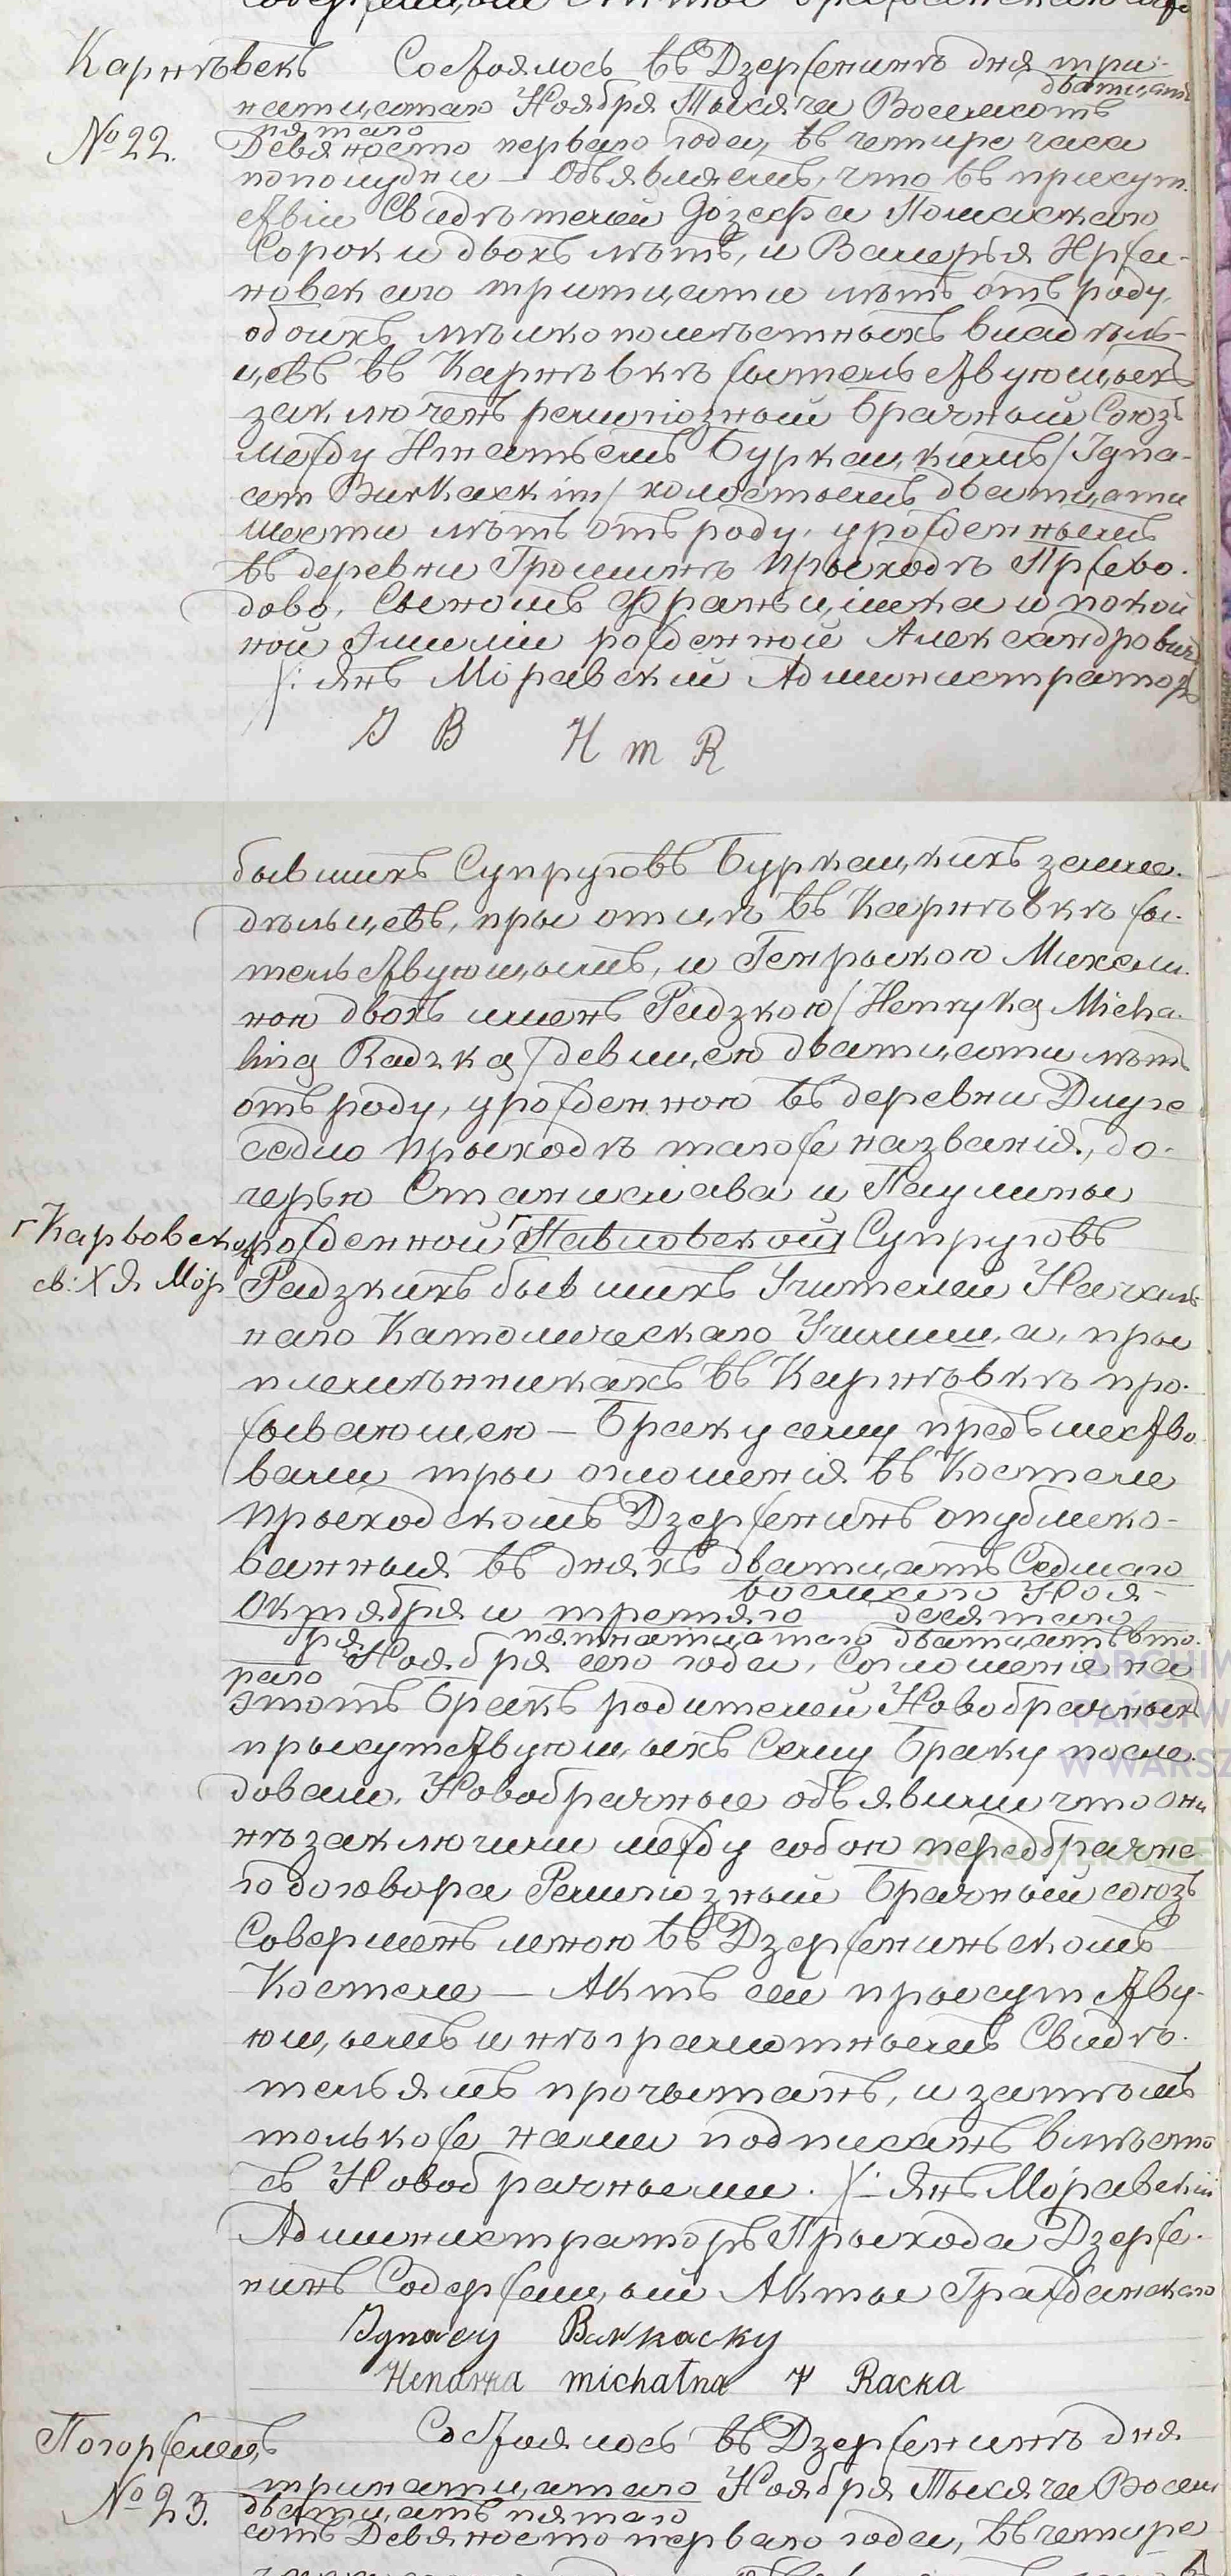 Карнѣвекъ
№ 22.
Состоялось въ Дзерженинѣ дня три-
двадцать
надцатаго Ноября Тысяча Восемсотъ
пятаго
Девяносто перваго года, въ четыре часа
пополудни — Объявляемъ, что въ присут-
ствіи Свидѣтелей Іозефа Помаскаго
Сорок и двохъ лѣтъ, и Валерья Иржа-
новскаго тритцати лѣтъ отъ роду,
обоихъ мѣлкопомѣстныхъ владѣль-
цевъ въ Карнѣвкѣ жытельствующыхъ
заключенъ религіозный брачный Союзъ
между Игнатъемъ Буркацкимъ /Igna-
cem Burkackim/ холостымъ двадцати
шести лѣтъ отъ роду, урожденнымъ
въ деревни Громинѣ прыходѣ Пржево-
дово, Сыномъ Францишка и покой
ной Эмиліи рожденной Александровичъ
/: Янъ Моравский Администраторъ
J B H m R
бывшихъ Супруговъ Буркацкихъ земле-
дѣльцевъ, при отцѣ въ Карнѣвкѣ жы-
тельствующымъ, и Генрыкою Михали-
ною двохъ именъ Радзкою /Henryką Micha-
liną Radzką/ девицею двадцати лѣтъ
отъ роду, урожденною въ деревни Длуге
седло прыходѣ тогоже названія, до-
черью Станислава и Паулины
┌ Карвовской
св: X Я. Мор.
рожденной ┌ Павловской Супруговъ
Радзкихъ бывшихъ Учителей Началь-
наго Католическаго Училища, при
племѣнникахъ въ Карнѣвкѣ про-
жывающею — Браку сему предшество-
вали три оглошенія въ Костеле
прыходскомъ Дзерженинъ опублико-
ванныя въ дняхъ двадцатъ Седмаго
восмаго Ноя-
Октября и третяго десятаго
бря пятнадцатаго двадцатъ вто-
раго Ноября сего года, Соглошенія на
этотъ бракъ родителей Новобрачныхъ
присутствующыхъ Сему браку после-
довали. Новобрачные объявили что они
нѣзаключили между собою передбрачна-
го договора Религіозный брачный союзъ
Совершенъ мною въ Дзерженинскомъ
Костеле — Актъ сей присутству-
ющымъ и нѣграмотнымъ Свидѣ-
тельямъ прочытанъ, и затѣмъ
толькоже нами подписанъ вмѣсто
съ Новобрачными. /: Янъ Моравский
Администраторъ Прыхода Дзерже-
нинъ Содержащый Акты Гражданскаго
Ignacy Burkacky
Henarka michalna Ψ Racka
Погоржелецъ
№ 23.
Состоялось въ Дзерженинѣ дня
тринадцатаго Ноября Тысяча Восем
двадцать пятаго
сотъ Девяносто перваго года, въ четыре